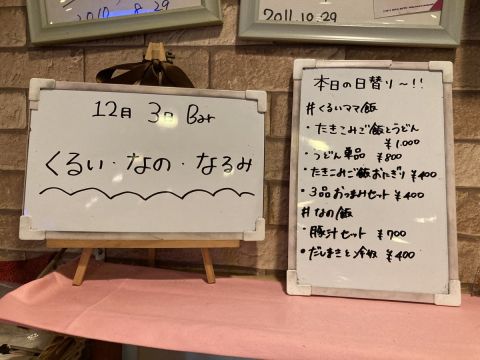 2010.8.29
2011.10.29
12月 3日 Bar
くるい・なの・なるみ
本日の日替り〜!!
#くるいママ飯
・たきこみご飯とうどん
¥1.000
・うどん単品 ¥800
・たきこみご飯おにぎり ¥400
・3品おつまみセット ¥400
#なの飯
・豚汁セット ¥700
・だしまきと冷奴 ¥400